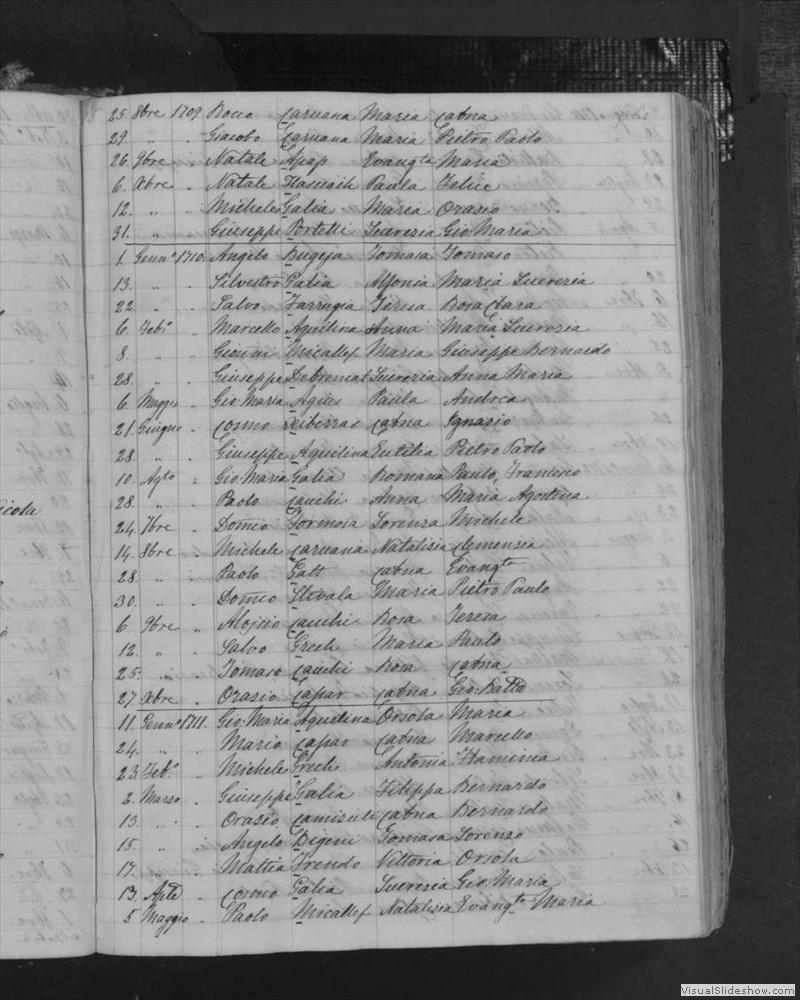 25 8bre 1709 Rocco Caruana Maria Catna
29. " . Giacobo Caruana Maria Pietro Paolo
26. 9bre . Natale Apap Evangta Maria
6. Xbre . Natale Paula Felice
12. " . Michele Galia Maria Orasio
31. " . Giuseppe Portelli Sucreria Gio Maria
1. Gennº 1710. Angelo Bugeja Tomasa Tomaso
13. " . Silvestro Galia Alfonia Maria Sucreria
22. " . Salvo Farrugia Teresa Rosa Clara
6. Febº . Marcello Aquilina Anna Maria Sucreria
8. " . Gionni Micallef Maria Giuseppe Bernardo
28. " . Giuseppe Sucreria Anna Maria
6. Maggio . Gio Maria Agius Paula Andrea
21. Giugno . Cosmo Xiberras Catna Ignazio
28. " . Giuseppe Aquilina Eutilia Pietro Paolo
10. Agto . Gio Maria Galia Romana Paulo, Franceso
28. " . Paolo Cauchi Anna Maria Agostina
24. 7bre . Domco Formosa Lorenza Michele
14. 8bre . Michele Caruana Natalisia Clemensia
28. " . Paolo Gatt Catna Evangta
30. " . Domco Stivala Maria Pietro Paulo
6. 9bre " Aloisio Cauchi Rosa Teresa
12. " . Salvo Grech Maria Paulo
25. " . Tomaso Cauchi Rosa Catna
27. Xbre . Orasio Capar Catna Gio Batta
11. Gennº 1711. Gio: Maria Aquilina Orsola Maria
24. " . Mario Capar Catna Marcello
23 Febº . Michele Grech Antonia Flaminia
2. Marzo . Giuseppe Galia Filippa Bernardo
13. " . Orasio Camisuli Catna Bernardo
15. " . Angelo Bigeni Tomasa Lorenzo
17. " . Mattia Frendo Vittoria Orsola
13. Aple . Cosmo Galia Sucreria Gio: Maria
5 Maggio . Paolo Micallef Natalisia Evangta Maria
icola
VisualSlideshow.com